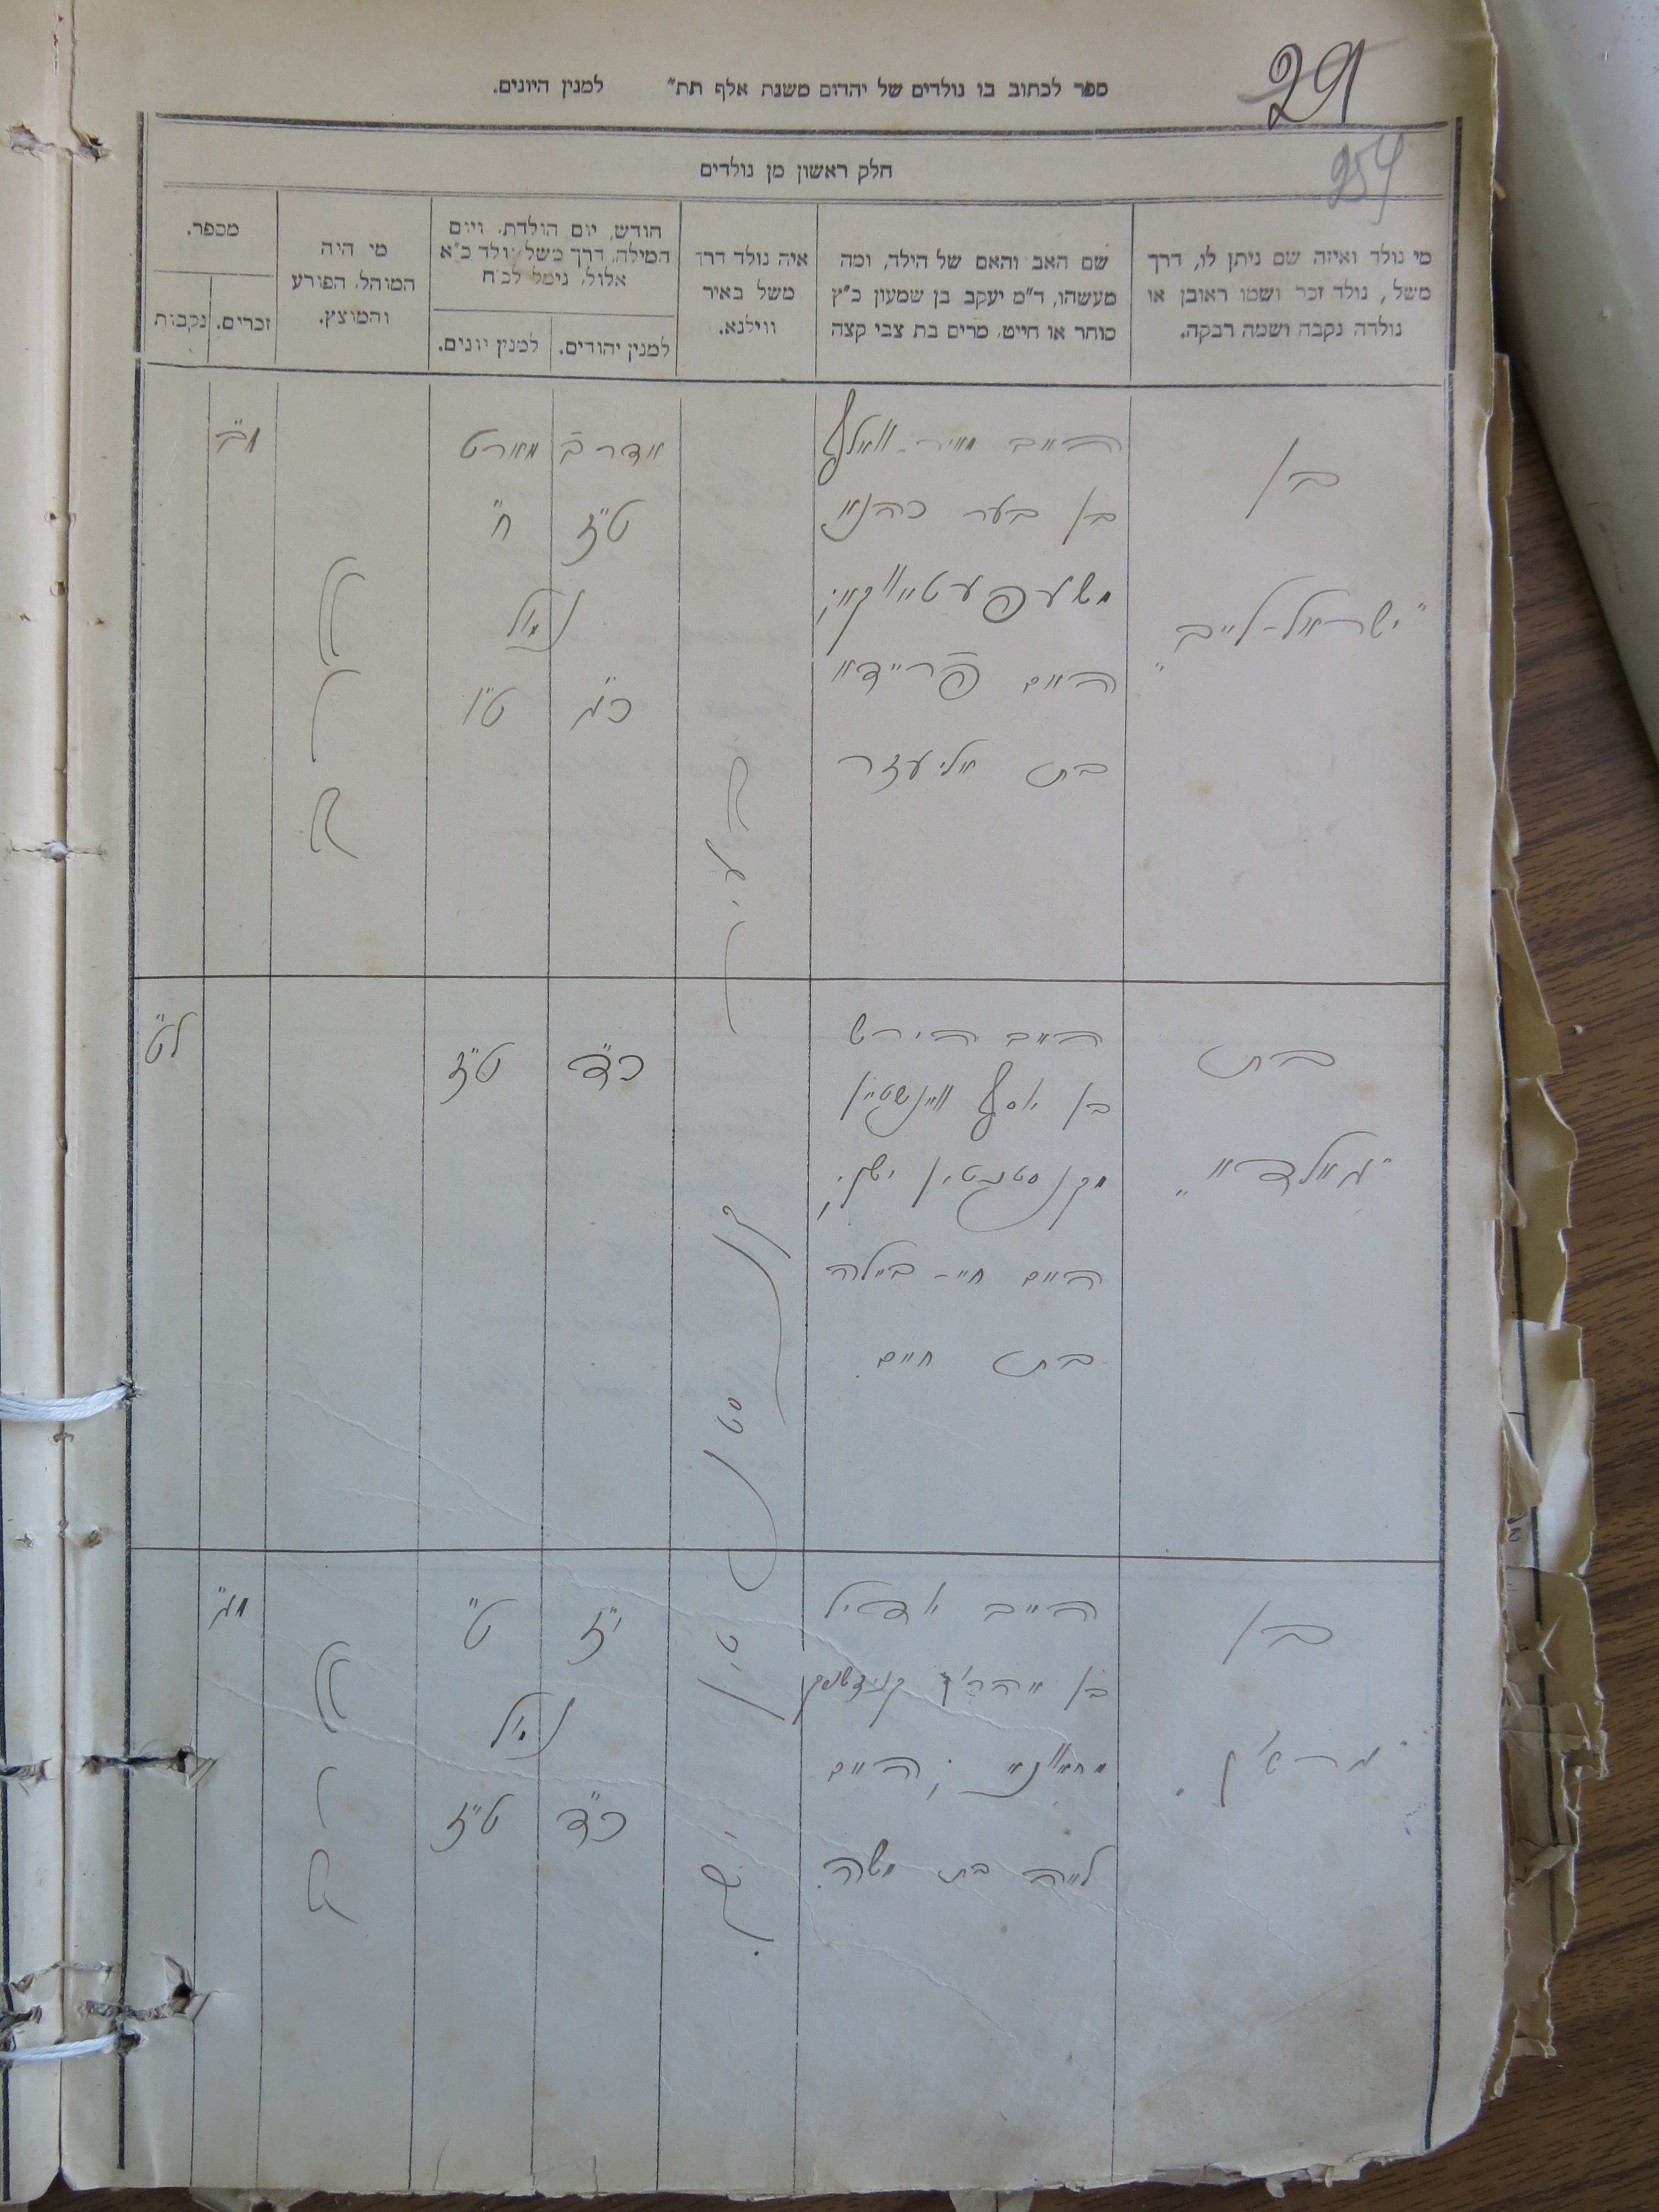 29
ספר לכתוב בו נולדים של יהדים משנת אלף תת״ למנין היונים.
254
חלק ראשון מן נולדים
מי נולד ואיזה שם ניתן לו, דרך
משל, נולד זכר ושמו ראובן או
נולדה נקבה ושמה רבקה.
שם האב והאם של הילד, ומה
מעשהו, ד״מ יעקב בן שמעון כ״ץ
סוחר או חייט, מרים בת צבי קצה
איה נולד דרך
משל באיר
ווילנא.
חודש, יום הולדת, ויום
המילה, דרך משל נולד כ״א
אלול, נימל לכ״ח
למנין יהודים.
למנין יונים.
מי היה
המוהל, הפורע
והמוצץ.
מספר.
זכרים.
נקבות
בן
"ישראל-לייב"
האב מאיר-וואלף
בן בער כהנא
האם פריידא
בת אליעזר
אדר ב מארט
ט״ז ח״
נימול
כ״ג ט״ו
מ״ב
העיר
בת
"גאלדא"
האב הירש
בן יוסף וויינשטיין
האם חי-ביילה
בת חיים
כ״ד ט״ז
ל״ט
בן
האב יודיל
בן
האם
לאה בת משה
י״ז ט״
נימול
כ״ד ט״ז
מ״ג